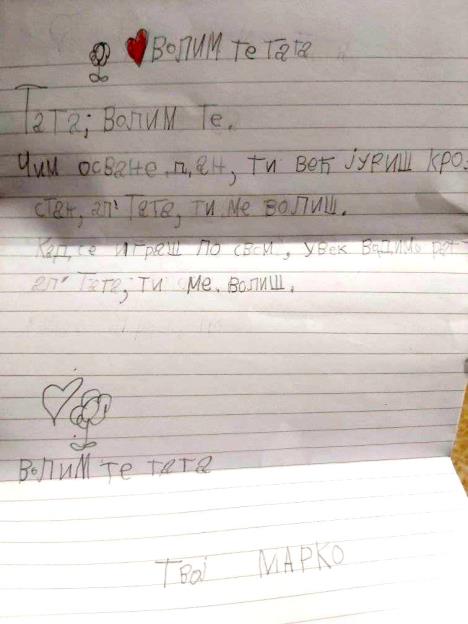 ВОЛИМ ТЕ ТАТА
Тата; ВОЛИМ ТЕ.
ЧИМ ОСВАНЕ ДАН, ТИ ВЕЋ ЈУРИШ КРО
СТАН, АЛ' ТАТА, ТИ МЕ ВОЛИШ.
КАД СЕ ИГРАШ ПО СВОМ, УВЕК ВАДИМО
АЛ' ТАТА; ТИ МЕ. ВОЛИШ.
ВОЛИМ ТЕ ТАТА
ТВОЈ МАРКО